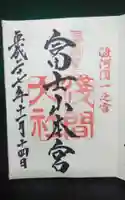 駿河國一之宮
富士山本宮
浅間
大社
平成二十八年十一月十四日